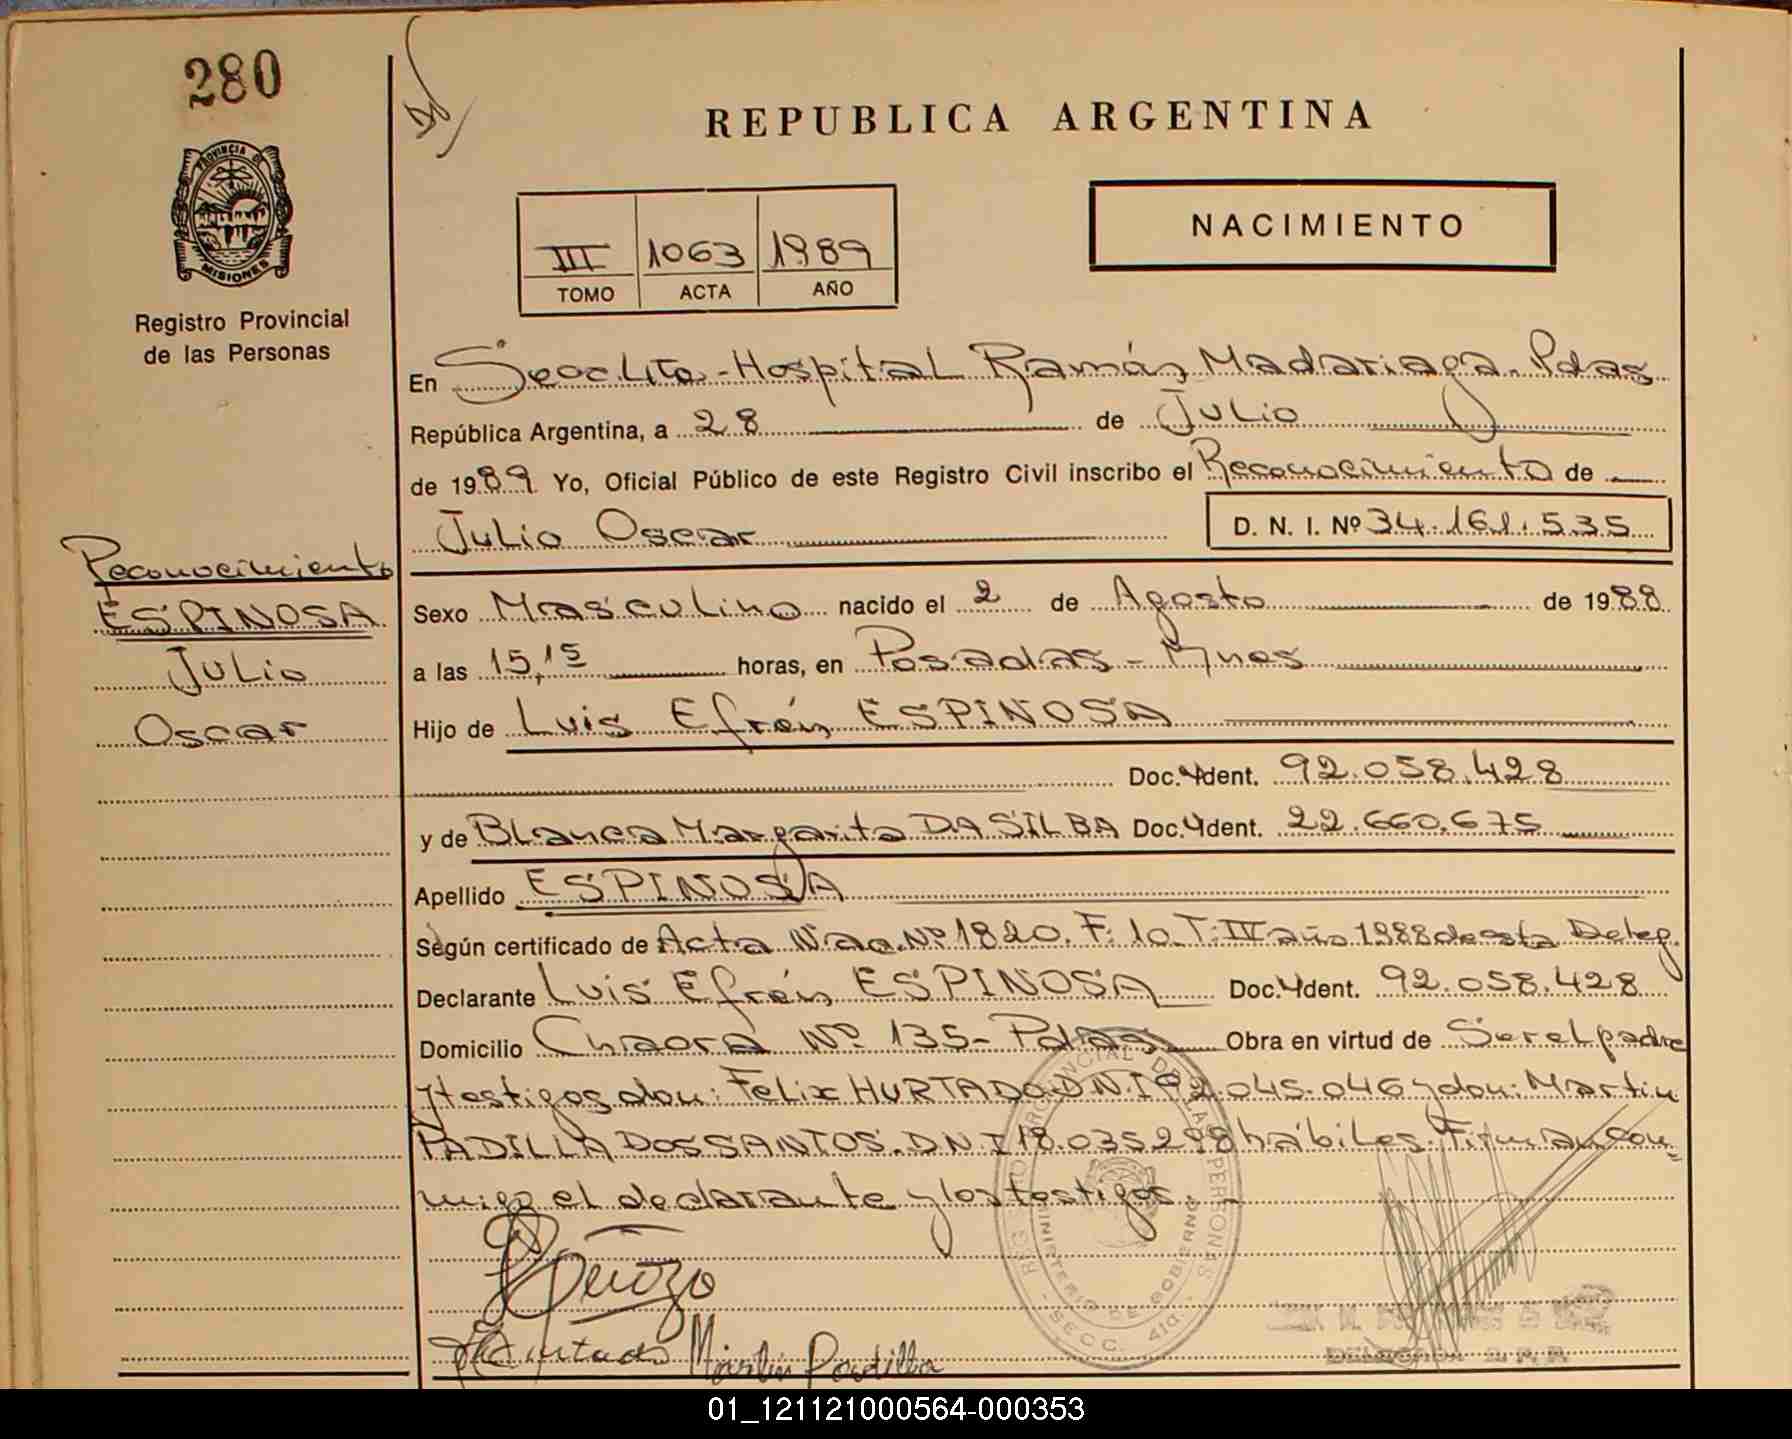 280
REPUBLICA ARGENTINA
PROVINCIA DE
MISIONES
Registro Provincial
de las Personas
III 1063 1989
TOMO ACTA AÑO
NACIMIENTO
En Secc. 4ta - Hospital Ramón Madariaga. Pdas
República Argentina, a 28 de Julio
de 1989 Yo, Oficial Público de este Registro Civil inscribo el Reconocimiento de
Julio Oscar D. N. I. Nº 34.161.535
Reconocimiento
ESPINOSA
Julio
Oscar
Sexo Masculino nacido el 2 de Agosto de 1988
a las 15,15 horas, en Posadas - Mnes
Hijo de Luis Efrén ESPINOSA
Doc. Ident. 92.058.428
y de Blanca Margarita DA SILBA Doc. Ident. 22.660.675
Apellido ESPINOSA
Según certificado de Acta Nac. Nº 1820. F: 10. T: III año 1988 de esta Deleg.
Declarante Luis Efrén ESPINOSA Doc. Ident. 92.058.428
Domicilio Chacra Nº 135 - Pdas Obra en virtud de Ser el padre
y testigos don: Felix HURTADO D.N.I 92.045.046 y don: Martin
PADILLA DOS SANTOS. D.N.I 18.035.298 hábiles. Firman con-
migo el declarante y los testigos. -
REGISTRO PROVINCIAL DE LAS PERSONAS
MINISTERIO DE GOBIERNO
SECC. 4ta.
Hurtado Martin Padilla
01_121121000564-000353